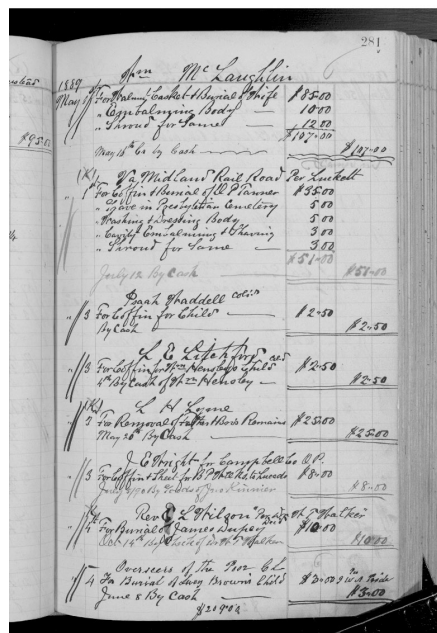 281
1889 Wm McLaughlin
May 1st For Walnut Casket & Burial of Wife $85.00
" Embalming Body 10.00
" Shroud for Same 12.00
$107.00
May 18th Cr by Cash $107.00
$95.00
Va Midland Rail Road Per Luckett
1st For Coffin & Burial of D P Tanner $35.00
" Grave in Presbyterian Cemetery 5 00
" Washing & Dressing Body 5 00
" Cavity Embalming & Shaving 3 00
" Shroud for Same 3 00
$51.00
July 12 By Cash $51.00
Isaah Waddell cold
" 3 For Coffin for Child $2.50
By Cash $2.50
L E Litchford
" 3 For Coffin for Wm Hensley's Child $2.50
4th By Cash of Wm Hensley $2.50
L H Lyne
" 3 For Removal of Remains $25.00
May 20 By Cash $25.00
J E Wright for Campbell Co O.P.
" 3 For Coffin & Shaft for $8.00
$8.00
Rev L Wilson W T Walker
" 4 For Burial of James Dupey $10.00
Oct 14th By Check of W T Walker $10.00
Overseers of the Poor
" 4 For Burial of Lucy Brown's Child $3.00
June 8 By Cash $3.00